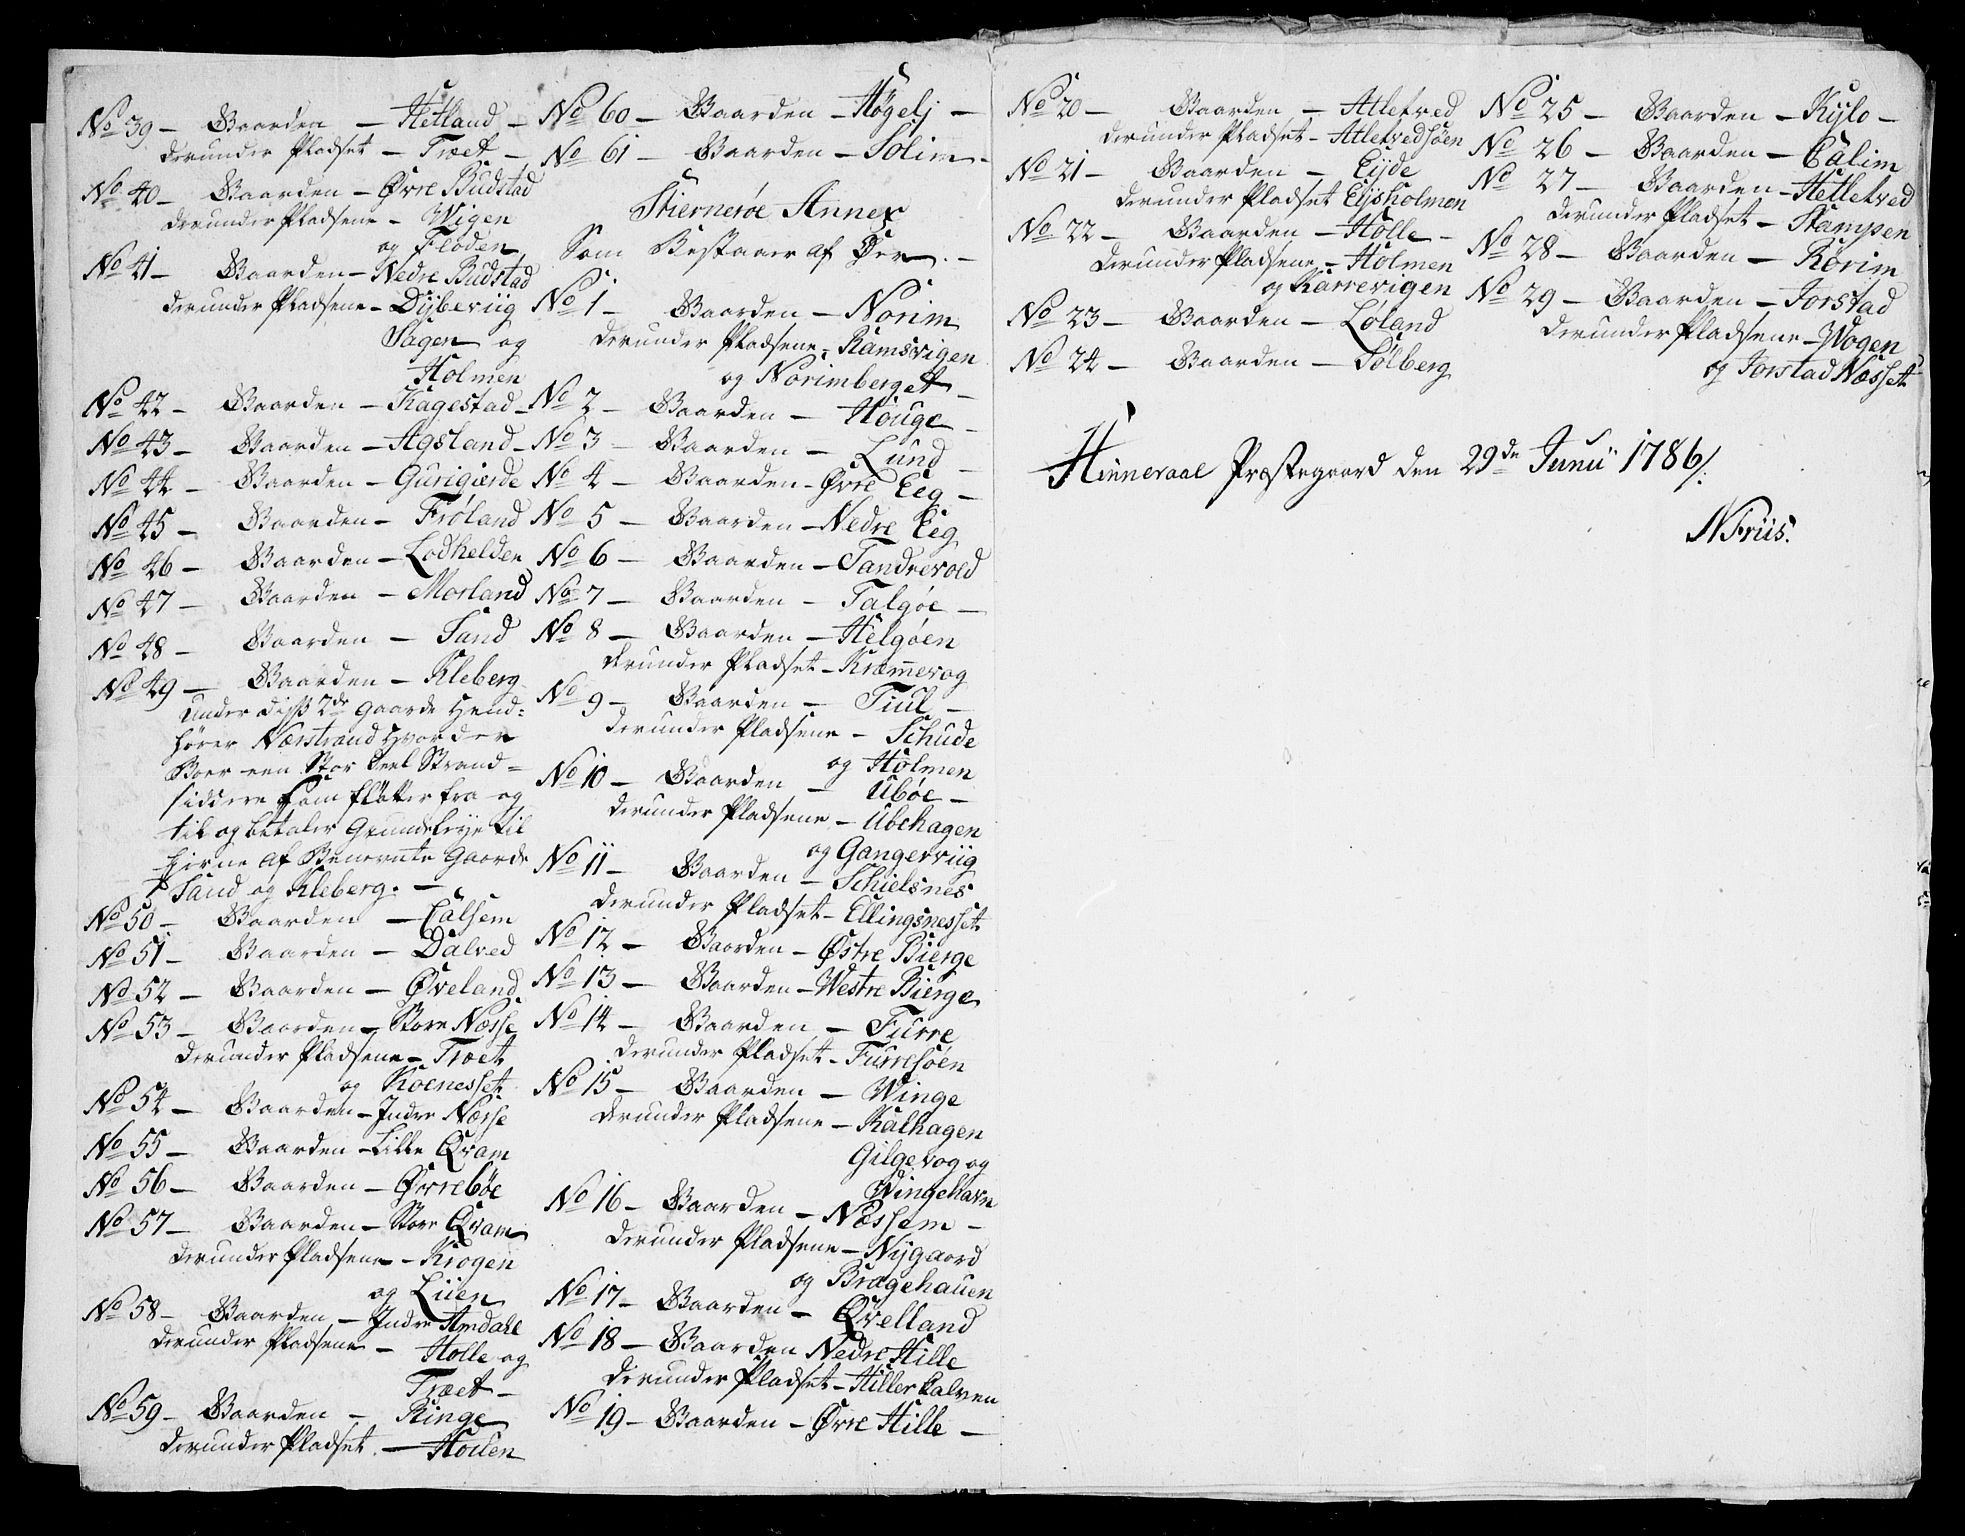 No 39 – Gaarden – Hetland –
derunder Pladset – Træet –
No 40 – Gaarden – Øvre Budstad
derunder Pladsene – Wigen
og Floden
No 41 – Gaarden – Nedre Budstad
derunder Pladsene – Dybeviig
Sagen og
Holmen
No 42 – Gaarden – Kagestad –
No 43 – Gaarden – Agsland –
No 44 – Gaarden – Gurigierde
No 45 – Gaarden – Frøland
No 46 – Gaarden – Lodhelden
No 47 – Gaarden – Morland
No 48 – Gaarden – Sand
No 49 – Gaarden – Kleberg
under disse 2de Gaarde Hend=
hører Nærstrand hvor der
Boer een Stor Deel Strand=
siddere som flötter fra og
til og betaler Grundeleye til
Eierne af Benevnte Gaarde
Sand og Kleberg. –
No 50 – Gaarden – Calsem
No 51 – Gaarden – Dalved
No 52 – Gaarden – Øveland
No 53 – Gaarden – Store Næsse
derunder Pladsene – Træet
og Koenesset
No 54 – Gaarden – Indre Næsse
No 55 – Gaarden – Lille Qvam
No 56 – Gaarden – Øvrebøe
No 57 – Gaarden – Store Qvam
derunder Pladsene – Krogen
og Liien
No 58 – Gaarden – Indre Amdahl
derunder Pladsene – Holle og
Træet –
No 59 – Gaarden – Ringe
derunder Pladset – Houen
No 60 – Gaarden – Høgelj –
No 61 – Gaarden – Solim –
Stiernerøe Annex
Som Bestaaer af Øer. –
No 1 – Gaarden – Norim
derunder Pladsene – Ramsvigen
og Norimberget –
No 2 – Gaarden – Houge –
No 3 – Gaarden – Lund –
No 4 – Gaarden – Øvre Eeg –
No 5 – Gaarden – Nedre Eeg
No 6 – Gaarden – Sandrevold
No 7 – Gaarden – Talgøe –
No 8 – Gaarden – Helgøen
derunder Pladset – Kræmmevog
No 9 – Gaarden – Tiul –
derunder Pladsene – Schude
og Holmen
No 10 – Gaarden – Ubøe –
derunder Pladsene – Ubehagen
og Gangerviig
No 11 – Gaarden – Schielsnes
derunder Pladset – Ellingsnesset
No 12 – Gaarden – Østre Bierge
No 13 – Gaarden – Westre Bierge
No 14 – Gaarden – Furre
derunder Pladset – Furresøen
No 15 – Gaarden – Winge
derunder Pladsene – Kalhagen
Gilgevog og
Wingehavn
No 16 – Gaarden – Næssem –
derunder Pladsene – Nygaard
og Brægehauen
No 17 – Gaarden – Qvelland
No 18 – Gaarden Nedre Hille
derunder Pladset – Hillerkalven
No 19 – Gaarden – Øvre Hille –
No 20 – Gaarden – Atletved
derunder Pladset – Atletvedsøen
No 21 – Gaarden – Eyde
derunder Pladset Eysholmen
No 22 – Gaarden – Holle –
derunder Pladsene – Holmen
og Karrevigen
No 23 – Gaarden – Løland
No 24 – Gaarden – Solberg
No 25 – Gaarden – Kylo –
No 26 – Gaarden – Calim
No 27 – Gaarden – Hetletved
derunder Pladset – Stampen
No 28 – Gaarden – Rørim
No 29 – Gaarden – Jorstad
derunder Pladsene – Wogen
og Jorstad Næsset
Hinneraae Præstegaard den 29de Junii 1786/.
N Friis.